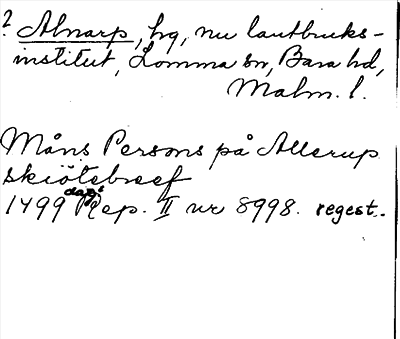 ? Alnarp, hg, nu lantbruks-
institut, Lomma sn, Bara hd,
Malm. l.
Måns Persons på Allerup
skiötebreef
1499 dat? Rep. II nr 8998. regest.